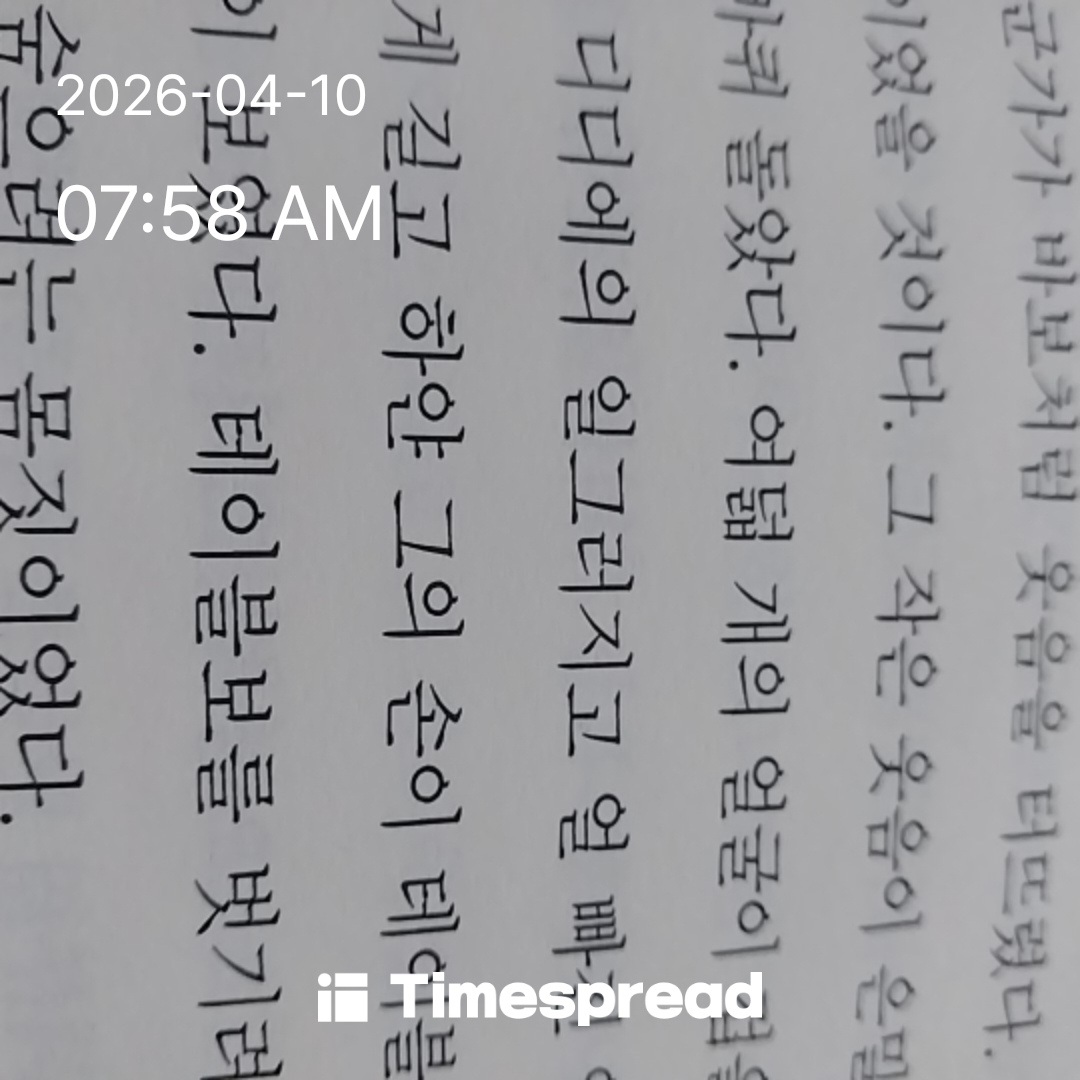 2026-04-10
07:58 AM
군가가 바보처럼 웃음을 터뜨렸다.
이었을 것이다. 그 작은 웃음이 은밀
바퀴 돌았다. 여덟 개의 얼굴이
디디에의 일그러지고 얼 빠진
게 길고 하얀 그의 손이 테이블
이 보였다. 테이블보를 벗기려
숨으려는 몸짓이었다.
Timespread